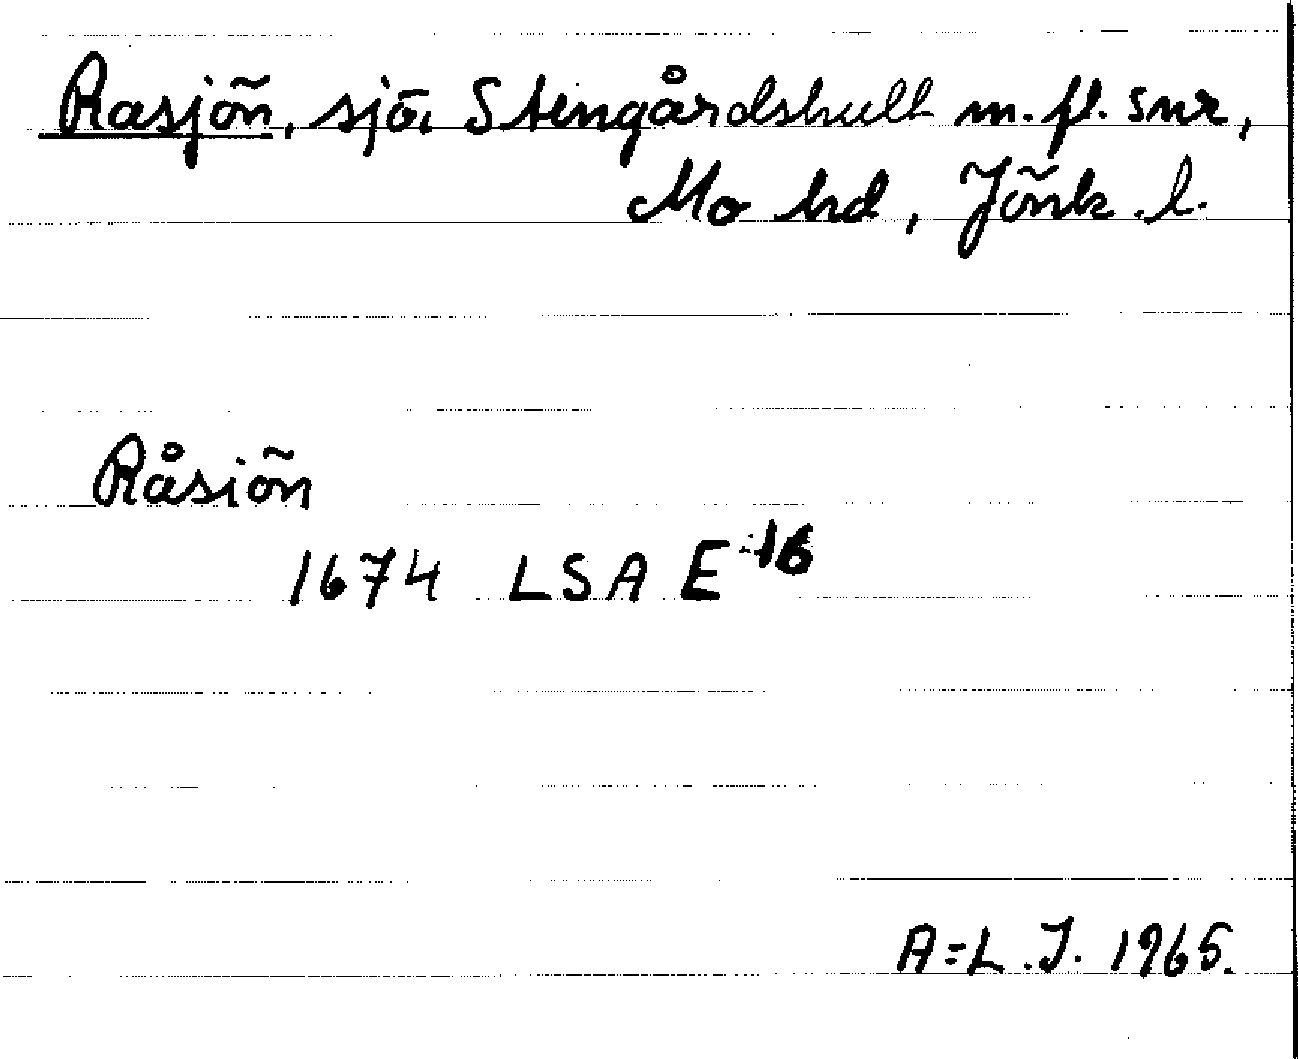 Rasjön, sjö, Stengårdshult m. fl. snr,
Mo hd, Jönk. l.
Råsiön
1674 LSA E 16
A-L. J. 1965.